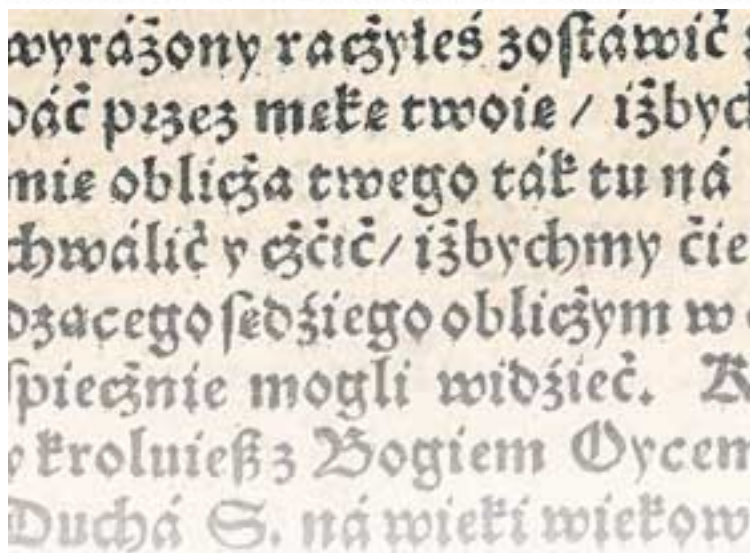 wyráżony raczyłeś zoſtáwić
dáć przez mękę twoię / iżbych
nie oblicża twego ták tu ná
chwálić y cżćić / iżbychmy ćie
dzącego ſędźiego oblicżym w
ſpiecżnie mogli widźieć. K
y kroluieß z Bogiem Oycem
Duchá S. ná wieki wiekow